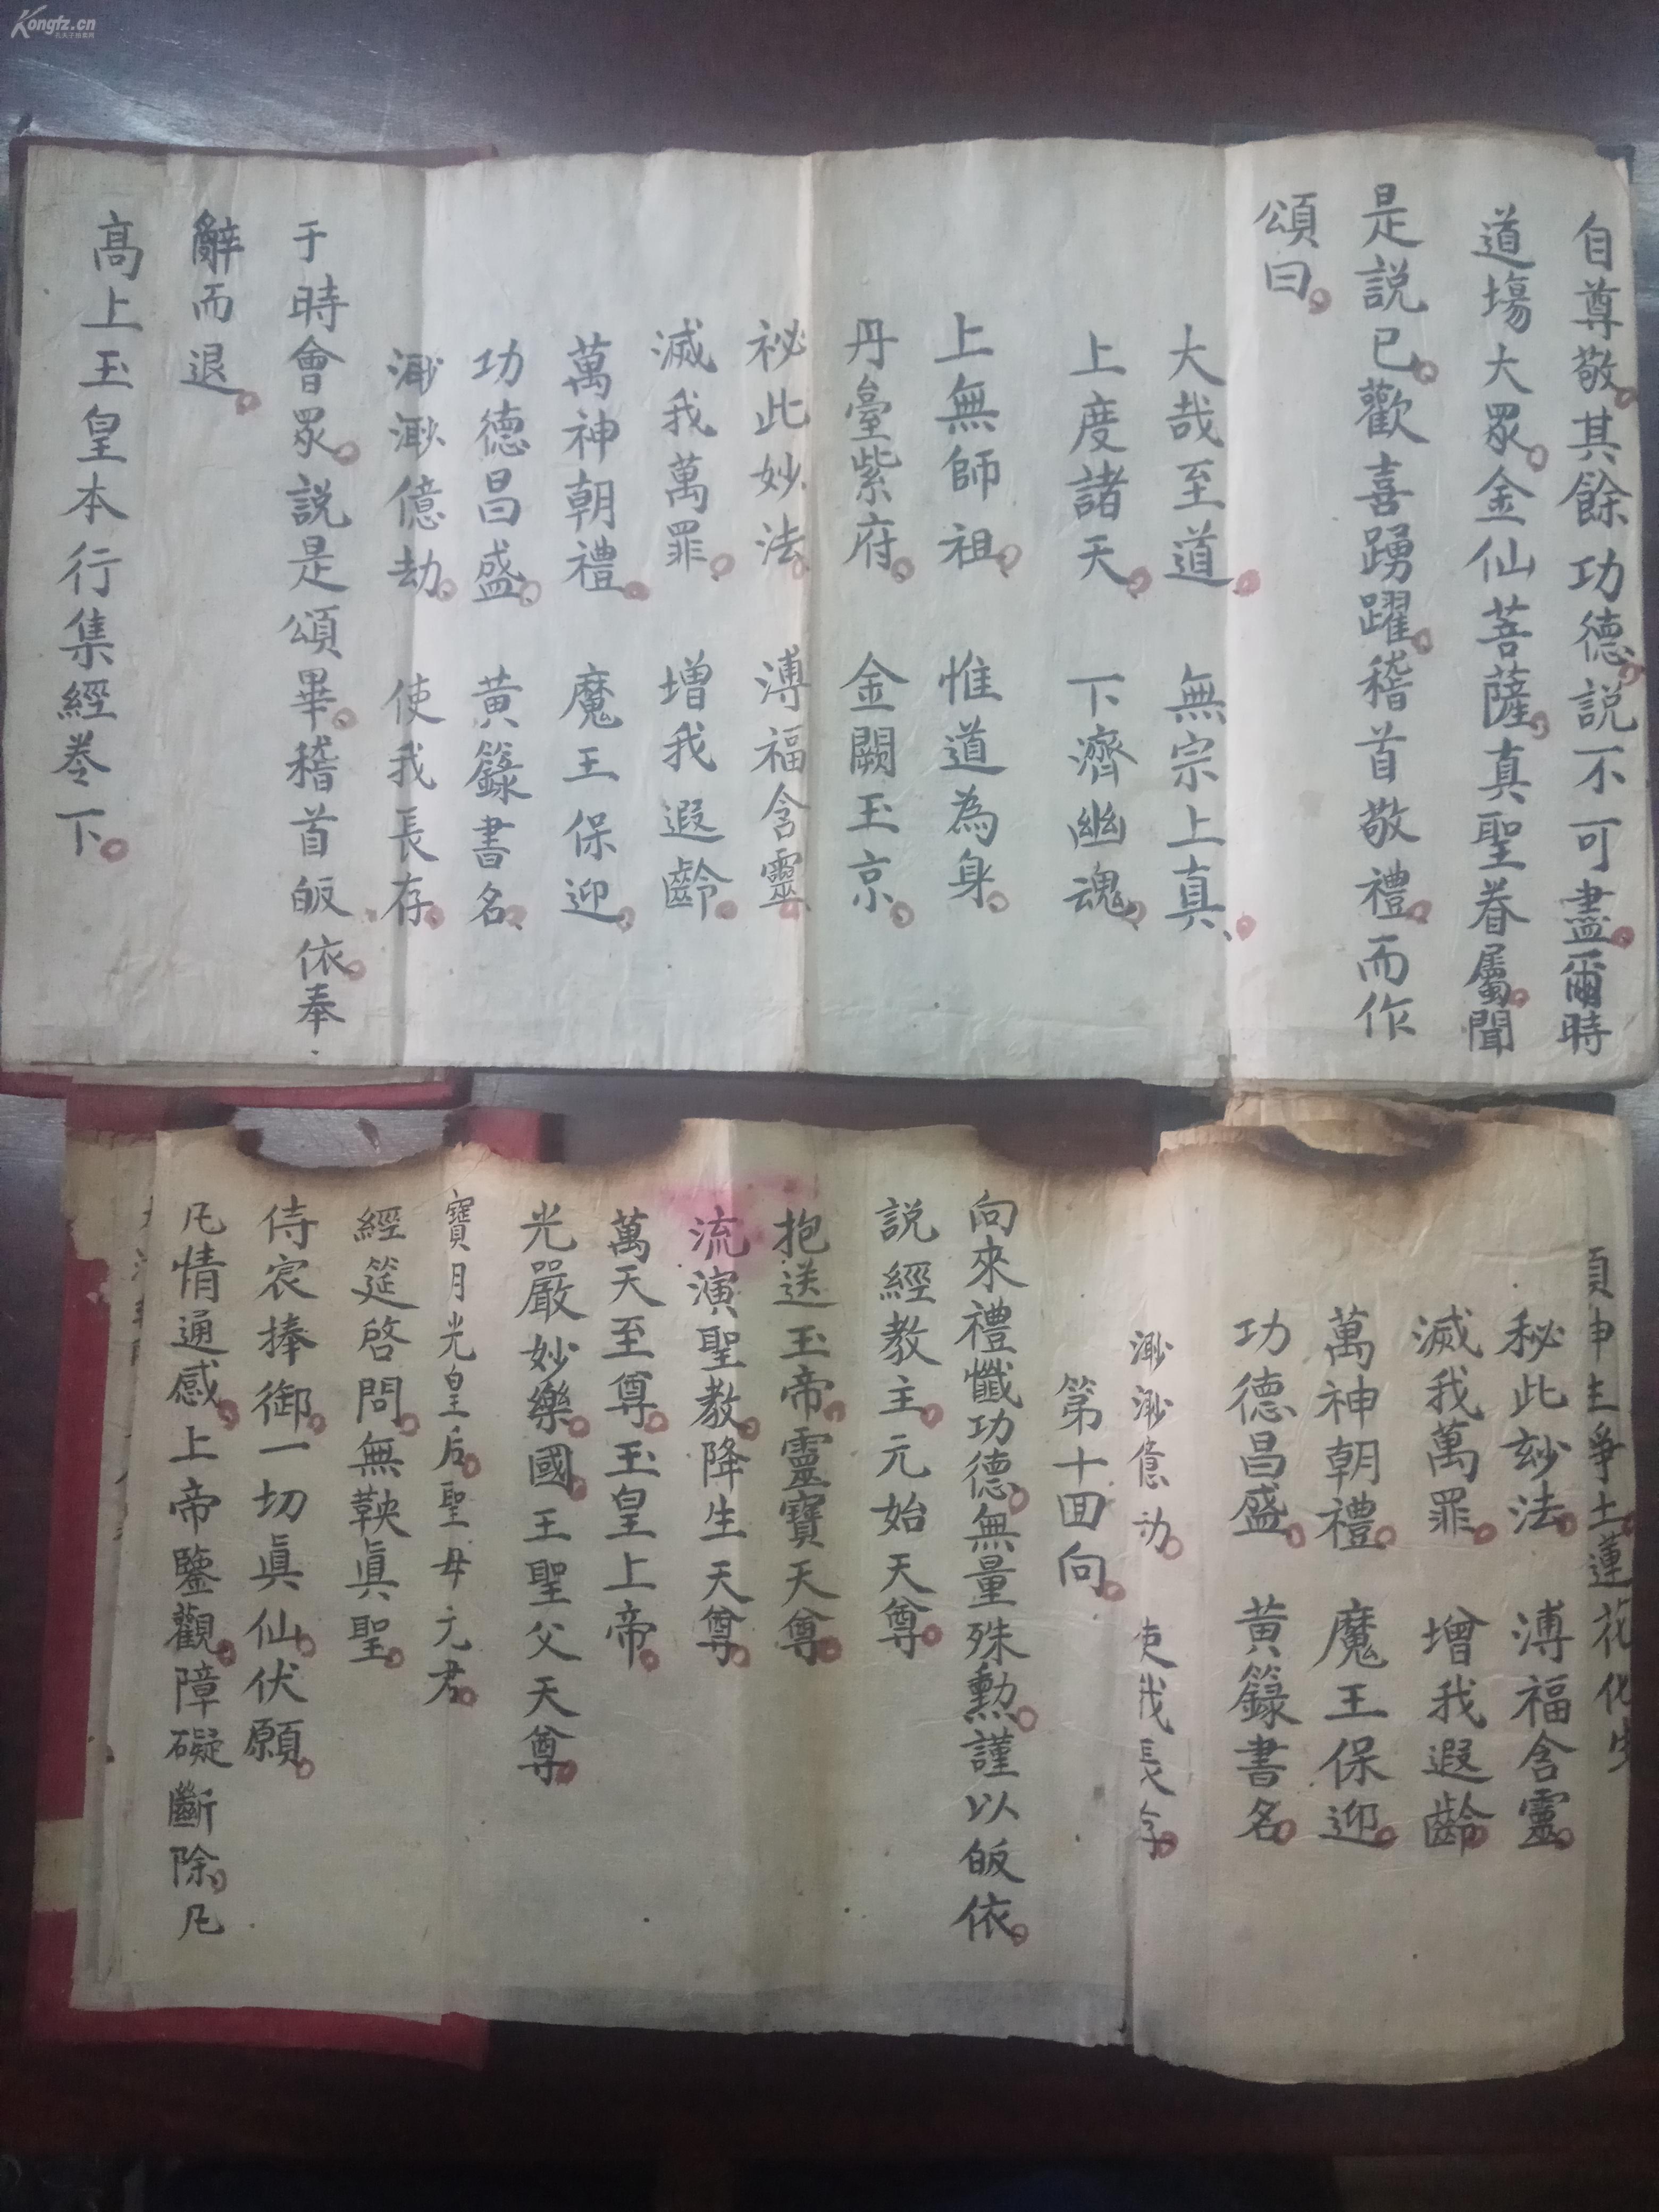 Kongfz.cn
自尊敬其餘功德説不可盡爾時
道塲大眾金仙菩薩真聖眷屬聞
是説已歡喜踴躍稽首敬禮而作
頌曰
大哉至道 無宗上真
上度諸天 下濟幽魂
上無師祖 惟道為身
丹臺紫府 金闕玉京
祕此妙法 溥福含靈
滅我萬罪 增我遐齡
萬神朝禮 魔王保迎
功德昌盛 黃籙書名
渺渺億劫 使我長存
于時會眾説是頌畢稽首皈依奉
辭而退
高上玉皇本行集經卷下
土蓮花化生
秘此玅法 溥福含靈
滅我萬罪 增我遐齡
萬神朝禮 魔王保迎
功德昌盛 黃籙書名
渺渺億劫 使我長存
第十回向
向來禮懺功德無量殊勳謹以皈依
説經教主元始天尊
抱送玉帝靈寶天尊
流演聖教降生天尊
萬天至尊玉皇上帝
光嚴妙樂國王聖父天尊
寶月光皇后聖母元君
經筵啓問無鞅眞聖
侍宸捧御一切眞仙伏願
凡情通感上帝鑒觀障礙斷除凡